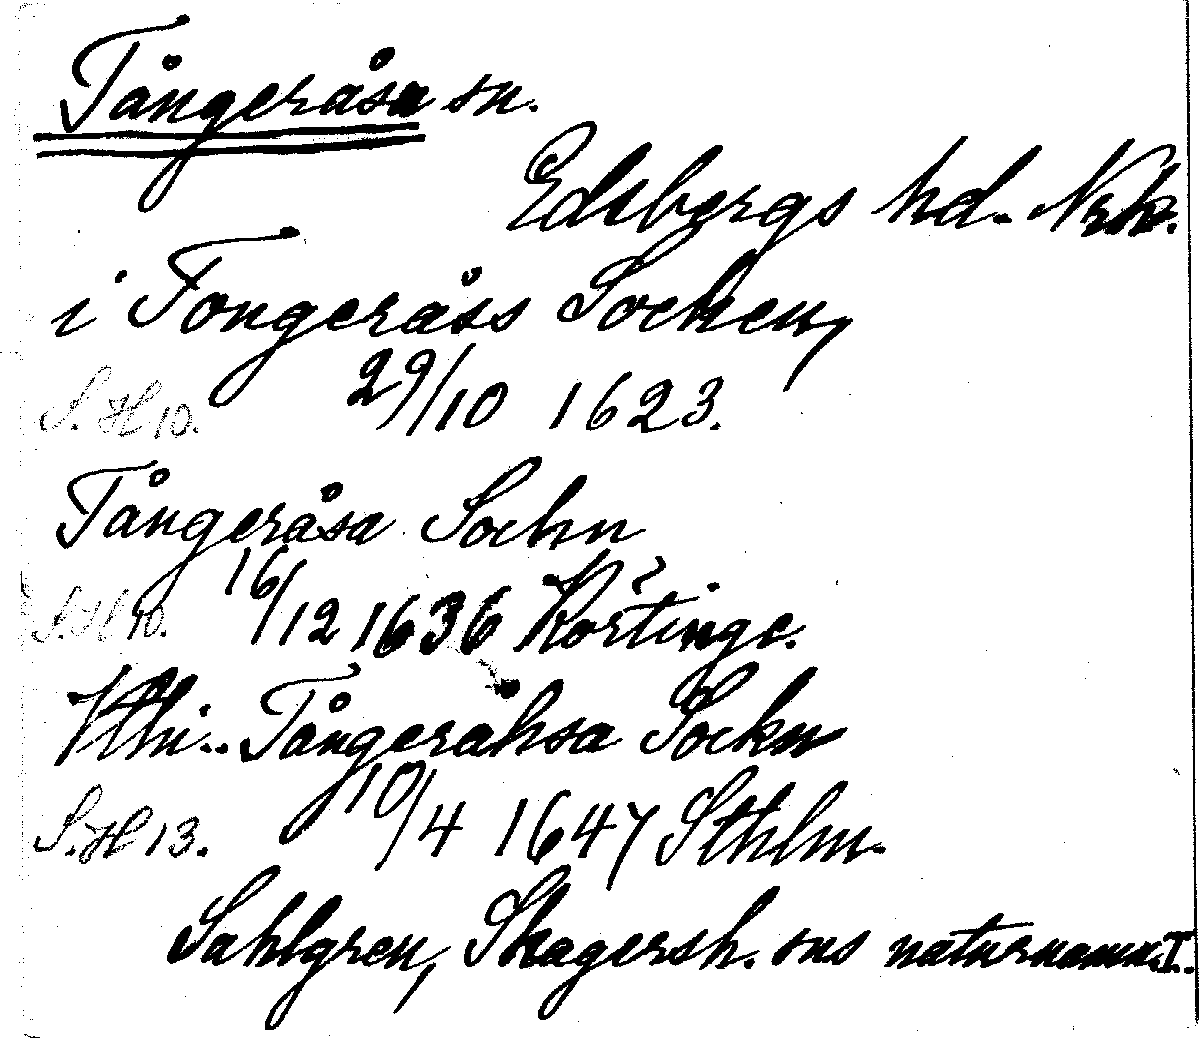 Tångeråsa sn.
Edsbergs hd. Nrk.
i Tongeråss Sochen,
S.H 10. 29/10 1623.
Tångeråsa Sochn
S.H 10. 16/12 1636 Körtinge.
Tångeråhsa Sockn
S.H 13. 10/4 1647 Sthlm.
Sahlgren, Skagersh. sns naturnamn. I.